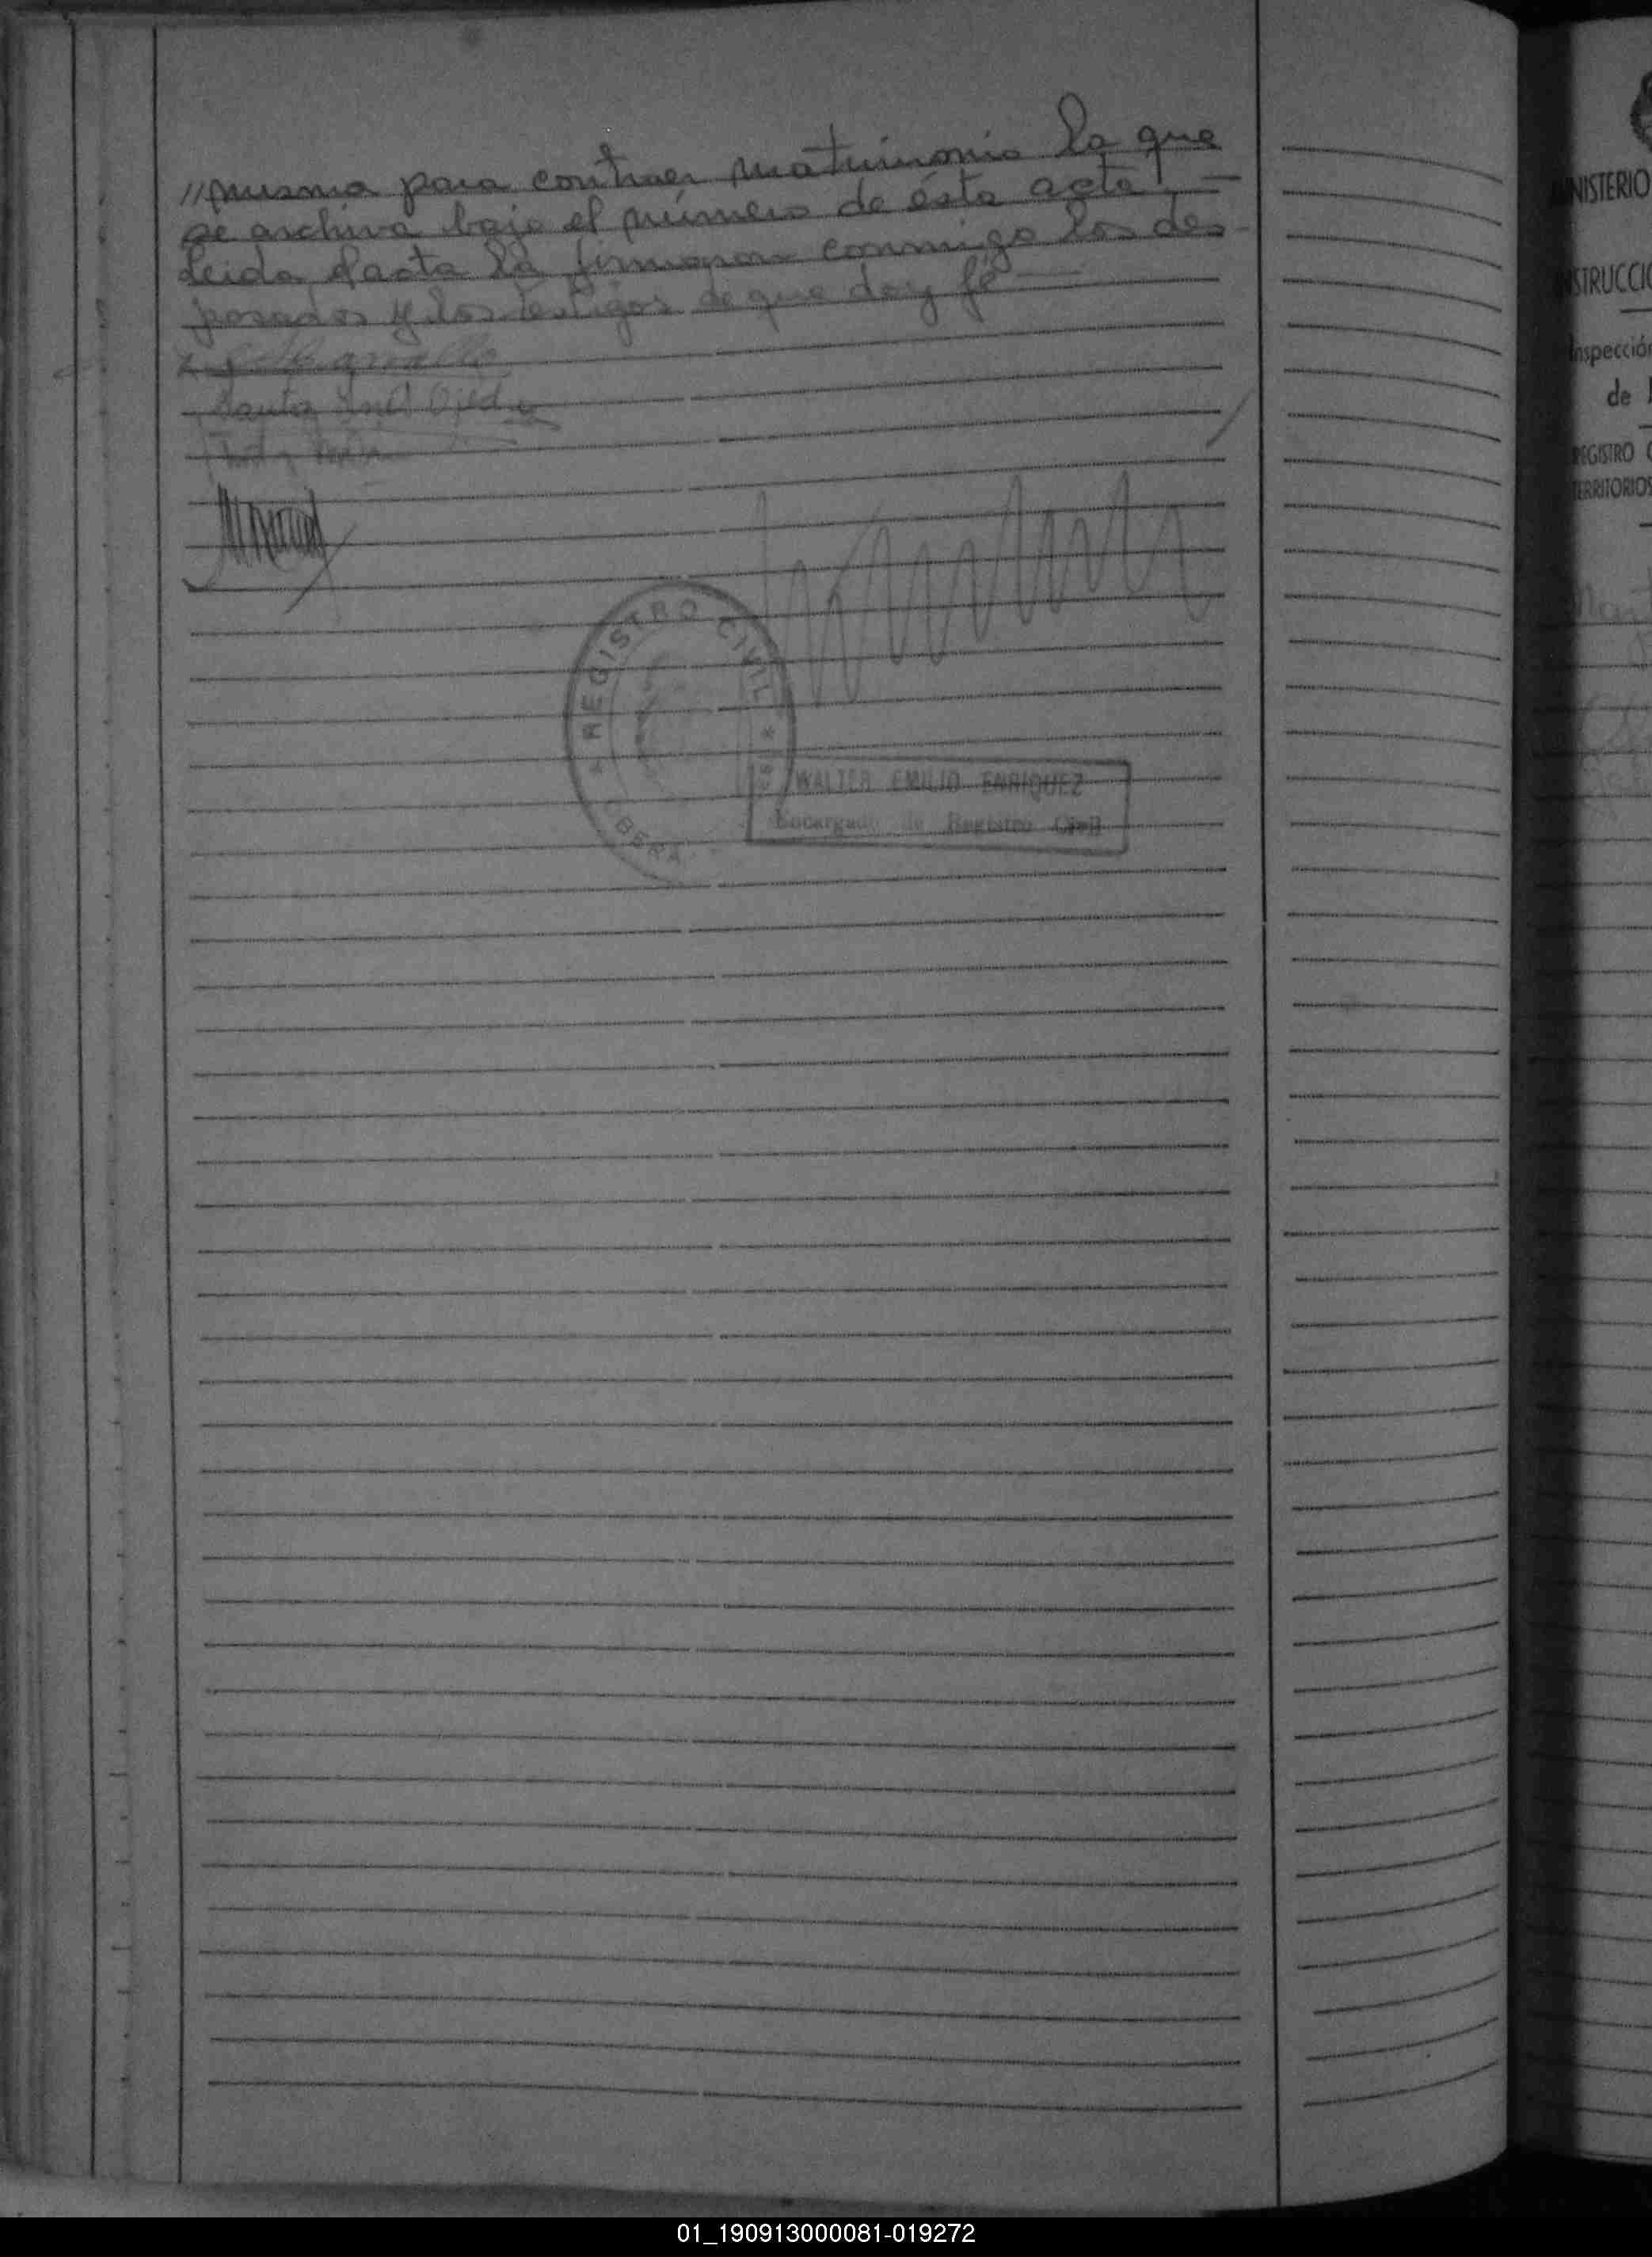 //misma para contraer matrimonio la que
se archiva bajo el número de ésta acta. —
Leida el acta la firmaron conmigo los des-
posados y los testigos de que doy fé —
REGISTRO CIVIL
OBERA
WALTER EMILIO ENRIQUEZ
Encargado de Registro Civil
MINISTERIO
INSTRUCCIO
Inspección
de
REGISTRO C
TERRITORIOS
01_190913000081-019272